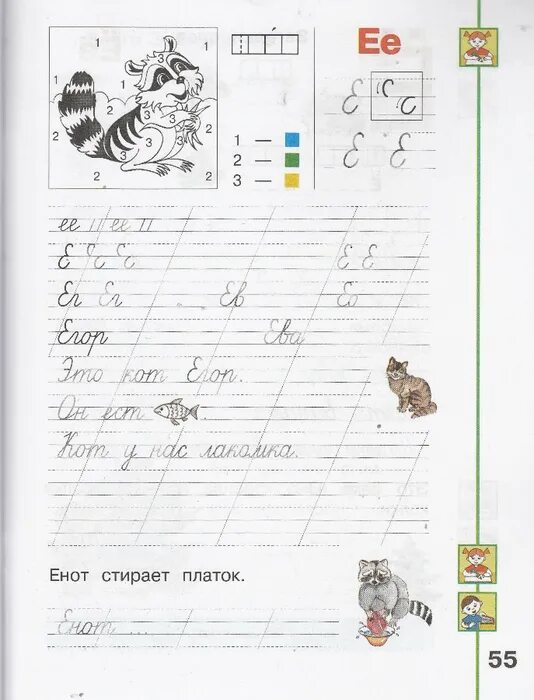 1 3 1
1
2 3 2
3 3
2 2
Ее
1 —
2 —
3 —
Е
Е Е
ее ее
Е Е Е Е Е
Ег Ег Ев Ео
Егор Ева
Это кот Егор.
Он ест .
Кот у нас лакомка.
Енот стирает платок.
Енот ...
55